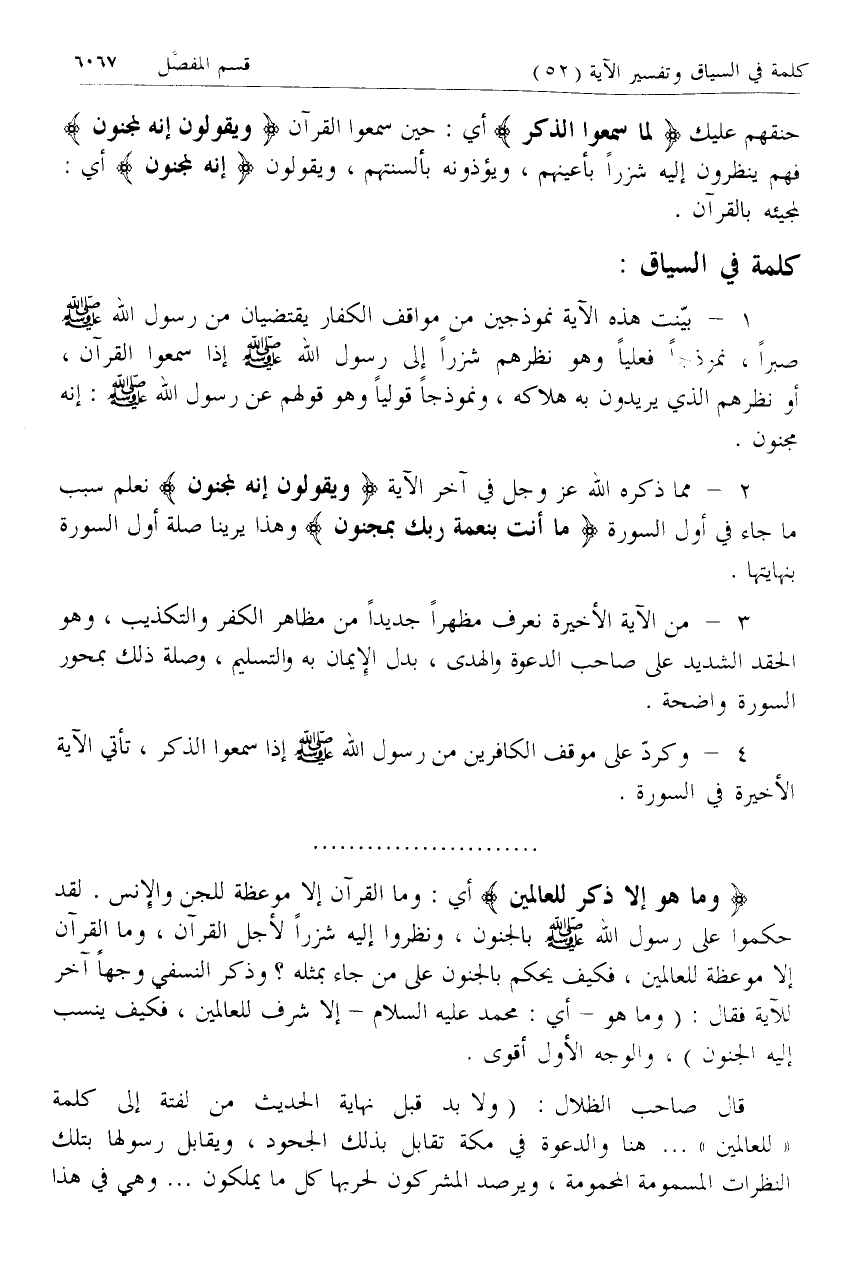 كلمة في السياق وتفسير الآية ( ٥٢ ) قسم المفصَّل ٦٠٦٧
حنقهم عليك ﴿ لما سمعوا الذكر ﴾ أي : حين سمعوا القرآن ﴿ ويقولون إنه لمجنون ﴾
فهم ينظرون إليه شزراً بأعينهم ، ويؤذونه بألسنتهم ، ويقولون ﴿ إنه لمجنون ﴾ أي :
لمجيئه بالقرآن .
كلمة في السياق :
١ – بيّنت هذه الآية نموذجين من مواقف الكفار يقتضيان من رسول الله ﷺ
صبراً ، نموذجاً فعلياً وهو نظرهم شزراً إلى رسول الله ﷺ إذا سمعوا القرآن ،
أو نظرهم الذي يريدون به هلاكه ، ونموذجاً قولياً وهو قولهم عن رسول الله ﷺ : إنه
مجنون .
٢ – مما ذكره الله عز وجل في آخر الآية ﴿ ويقولون إنه لمجنون ﴾ نعلم سبب
ما جاء في أول السورة ﴿ ما أنت بنعمة ربك بمجنون ﴾ وهذا يرينا صلة أول السورة
بنهايتها .
٣ – من الآية الأخيرة نعرف مظهراً جديداً من مظاهر الكفر والتكذيب ، وهو
الحقد الشديد على صاحب الدعوة والهدى ، بدل الإيمان به والتسليم ، وصلة ذلك بمحور
السورة واضحة .
٤ – وكردّ على موقف الكافرين من رسول الله ﷺ إذا سمعوا الذكر ، تأتي الآية
الأخيرة في السورة .
.........................
﴿ وما هو إلا ذكر للعالمين ﴾ أي : وما القرآن إلا موعظة للجن والإنس . لقد
حكموا على رسول الله ﷺ بالجنون ، ونظروا إليه شزراً لأجل القرآن ، وما القرآن
إلا موعظة للعالمين ، فكيف يحكم بالجنون على من جاء بمثله ؟ وذكر النسفي وجهاً آخر
للآية فقال : ( وما هو – أي : محمد عليه السلام – إلا شرف للعالمين ، فكيف ينسب
إليه الجنون ) ، والوجه الأول أقوى .
قال صاحب الظلال : ( ولا بد قبل نهاية الحديث من لفتة إلى كلمة
« للعالمين » ... هنا والدعوة في مكة تقابل بذلك الجحود ، ويقابل رسولها بتلك
النظرات المسمومة المحمومة ، ويرصد المشركون لحربها كل ما يملكون ... وهي في هذا